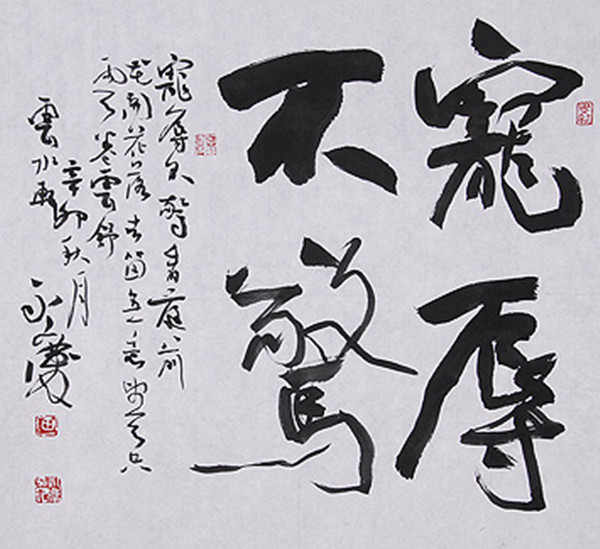 寵辱
不驚
寵辱不驚看庭前
花開花落去留無意望天
卷雲舒
辛卯秋月
雲水